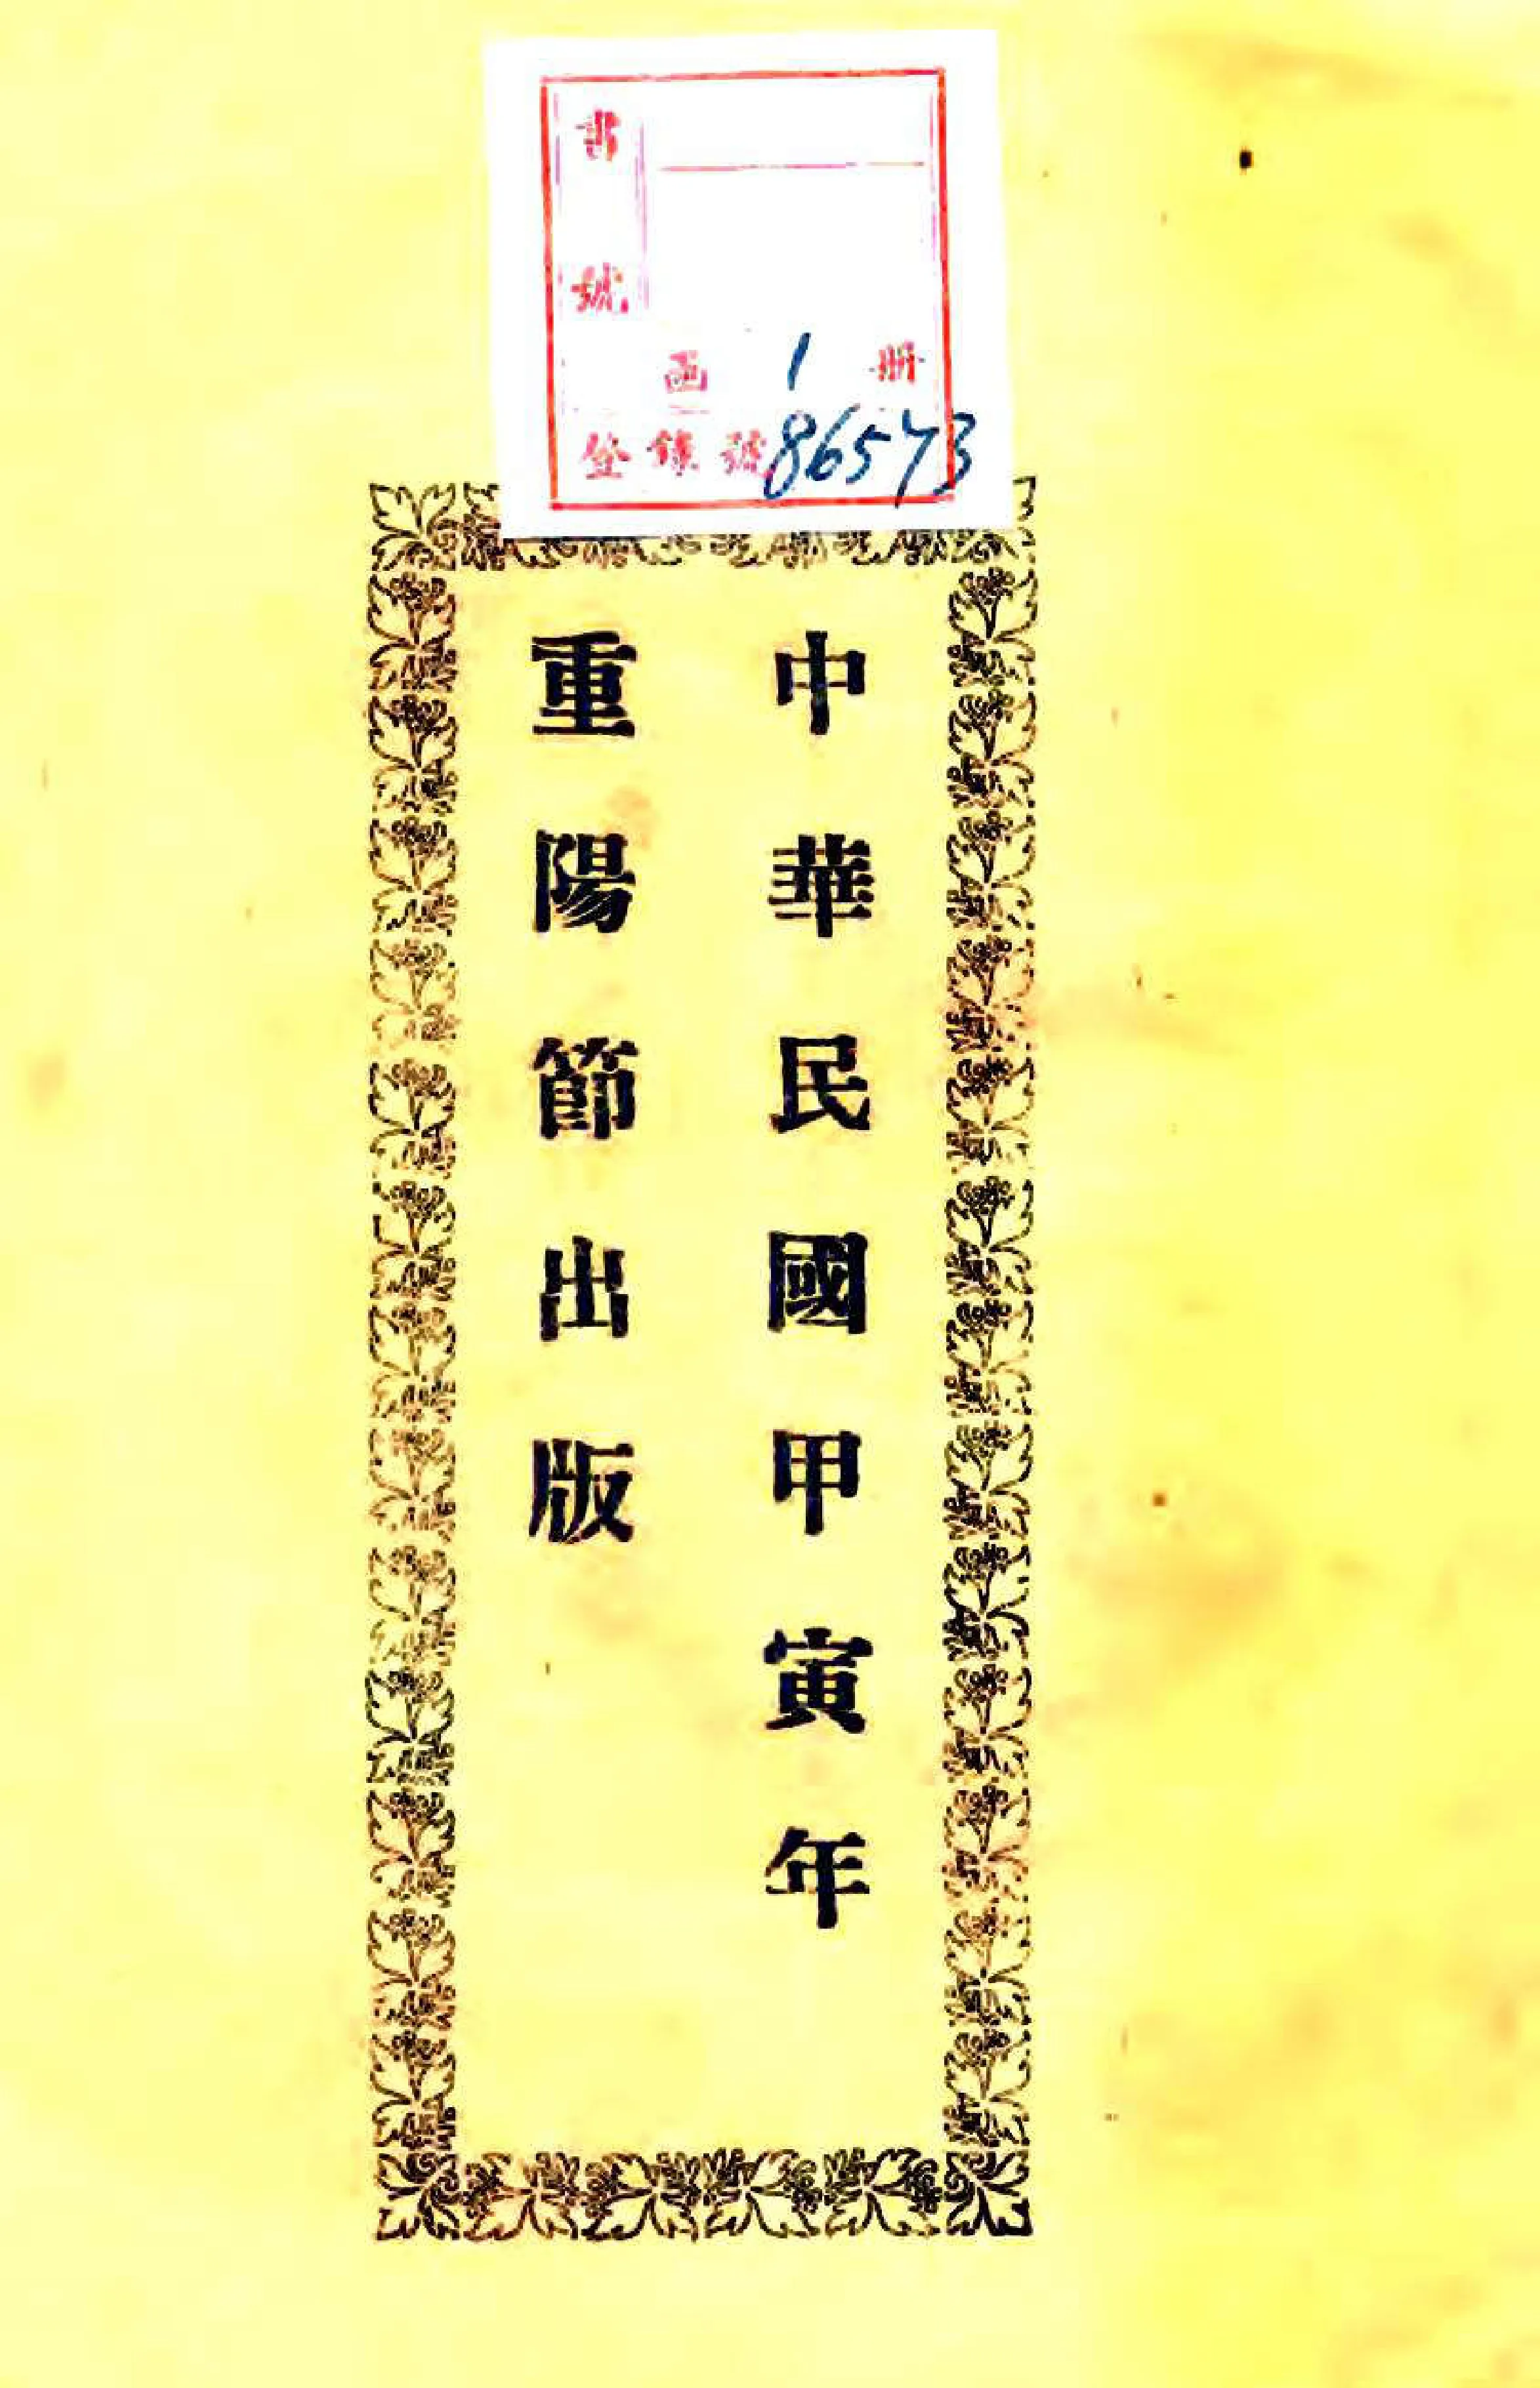 書號
函 1 册
登錄號86573
中華民國甲寅年
重陽節出版